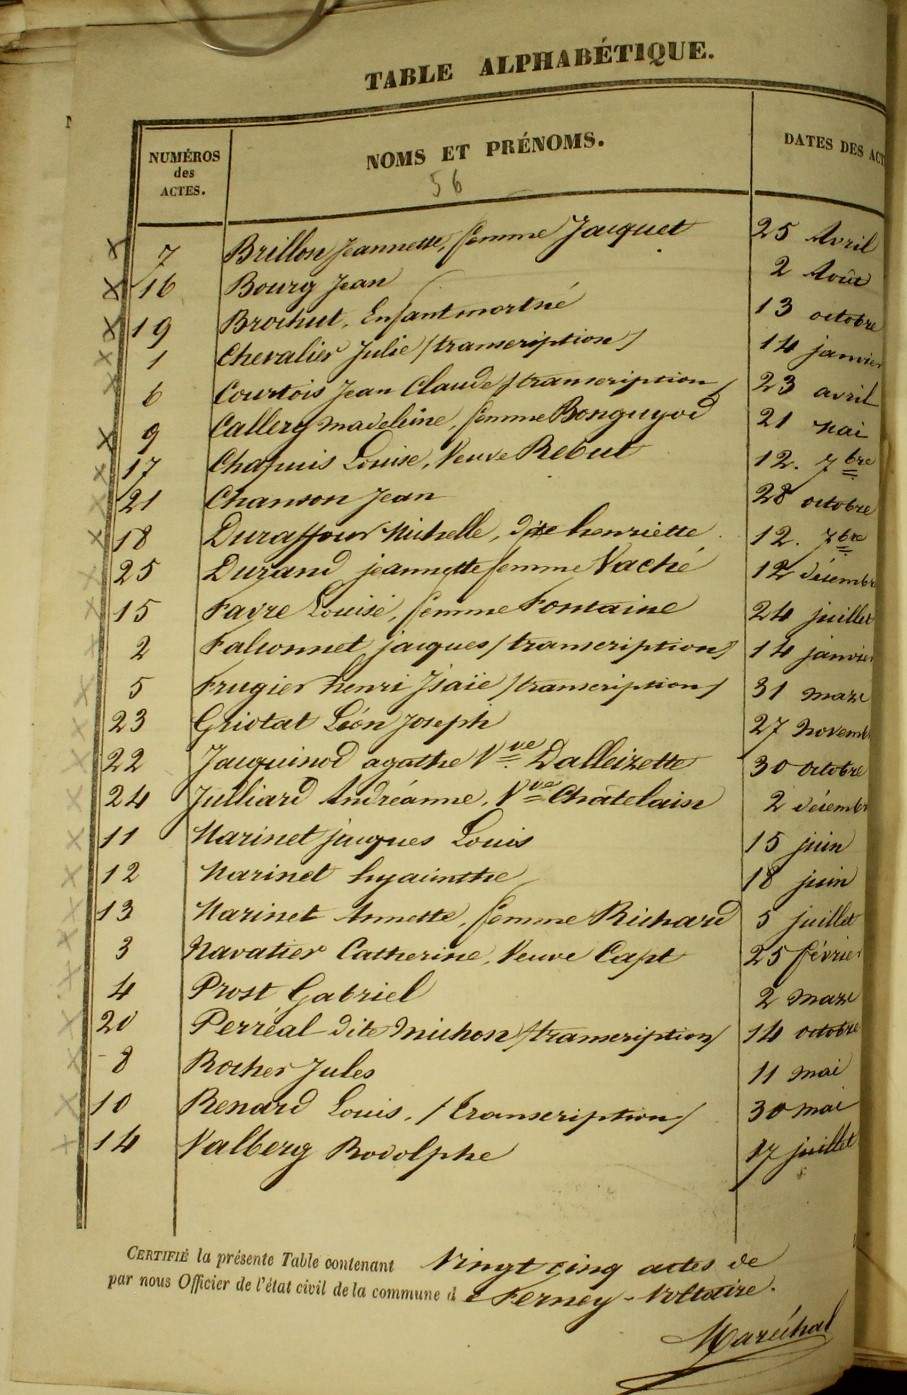 TABLE ALPHABÉTIQUE.
NUMÉROS des ACTES. NOMS ET PRÉNOMS. DATES DES ACT
56
7 Brillon Jeannette, femme Jacquet 25 Avril
16 Bourg Jean 2 Août
19 Brochut, Enfant mort né 13 octobre
1 Chevalier Julie /transcription/ 14 janvier
6 Courtois Jean Claude /transcription/ 23 avril
9 Callery madeleine, femme Bonguyod 21 Mai
17 Chapuis Louise, Veuve Rebut 12. 7bre
21 Chanson Jean 28 octobre
18 Duraffour Michelle, dite henriette 12. 7bre
25 Durand jeannette femme Vaché 12 décembr
15 Favre Louise, femme Fontaine 24 juillet
2 Falconnet jacques /transcription/ 14 janvier
5 Frugier henri Isaïe /transcription/ 31 mars
23 Griotat Léon Joseph 27 Novemb
22 Jacquinod agathe Vve Dalleizette 30 octobre
24 Julliard Andréanne, Vve Châtelain 2 décembr
11 Marinet jacques Louis 15 juin
12 Marinet hyacinthe 18 juin
13 Marinet Annette, femme Richard 5 juillet
3 Navatier Catherine, Veuve Capt 25 février
4 Prost Gabriel 2 mars
20 Perréal dite Michon /transcription/ 14 octobre
8 Rocher Jules 11 mai
10 Renard Louis, /transcription/ 30 mai
14 Valberg Rodolphe 17 juillet
CERTIFIÉ la présente Table contenant Vingt cinq actes de
par nous Officier de l'état civil de la commune de Ferney-Voltaire.
Maréchal